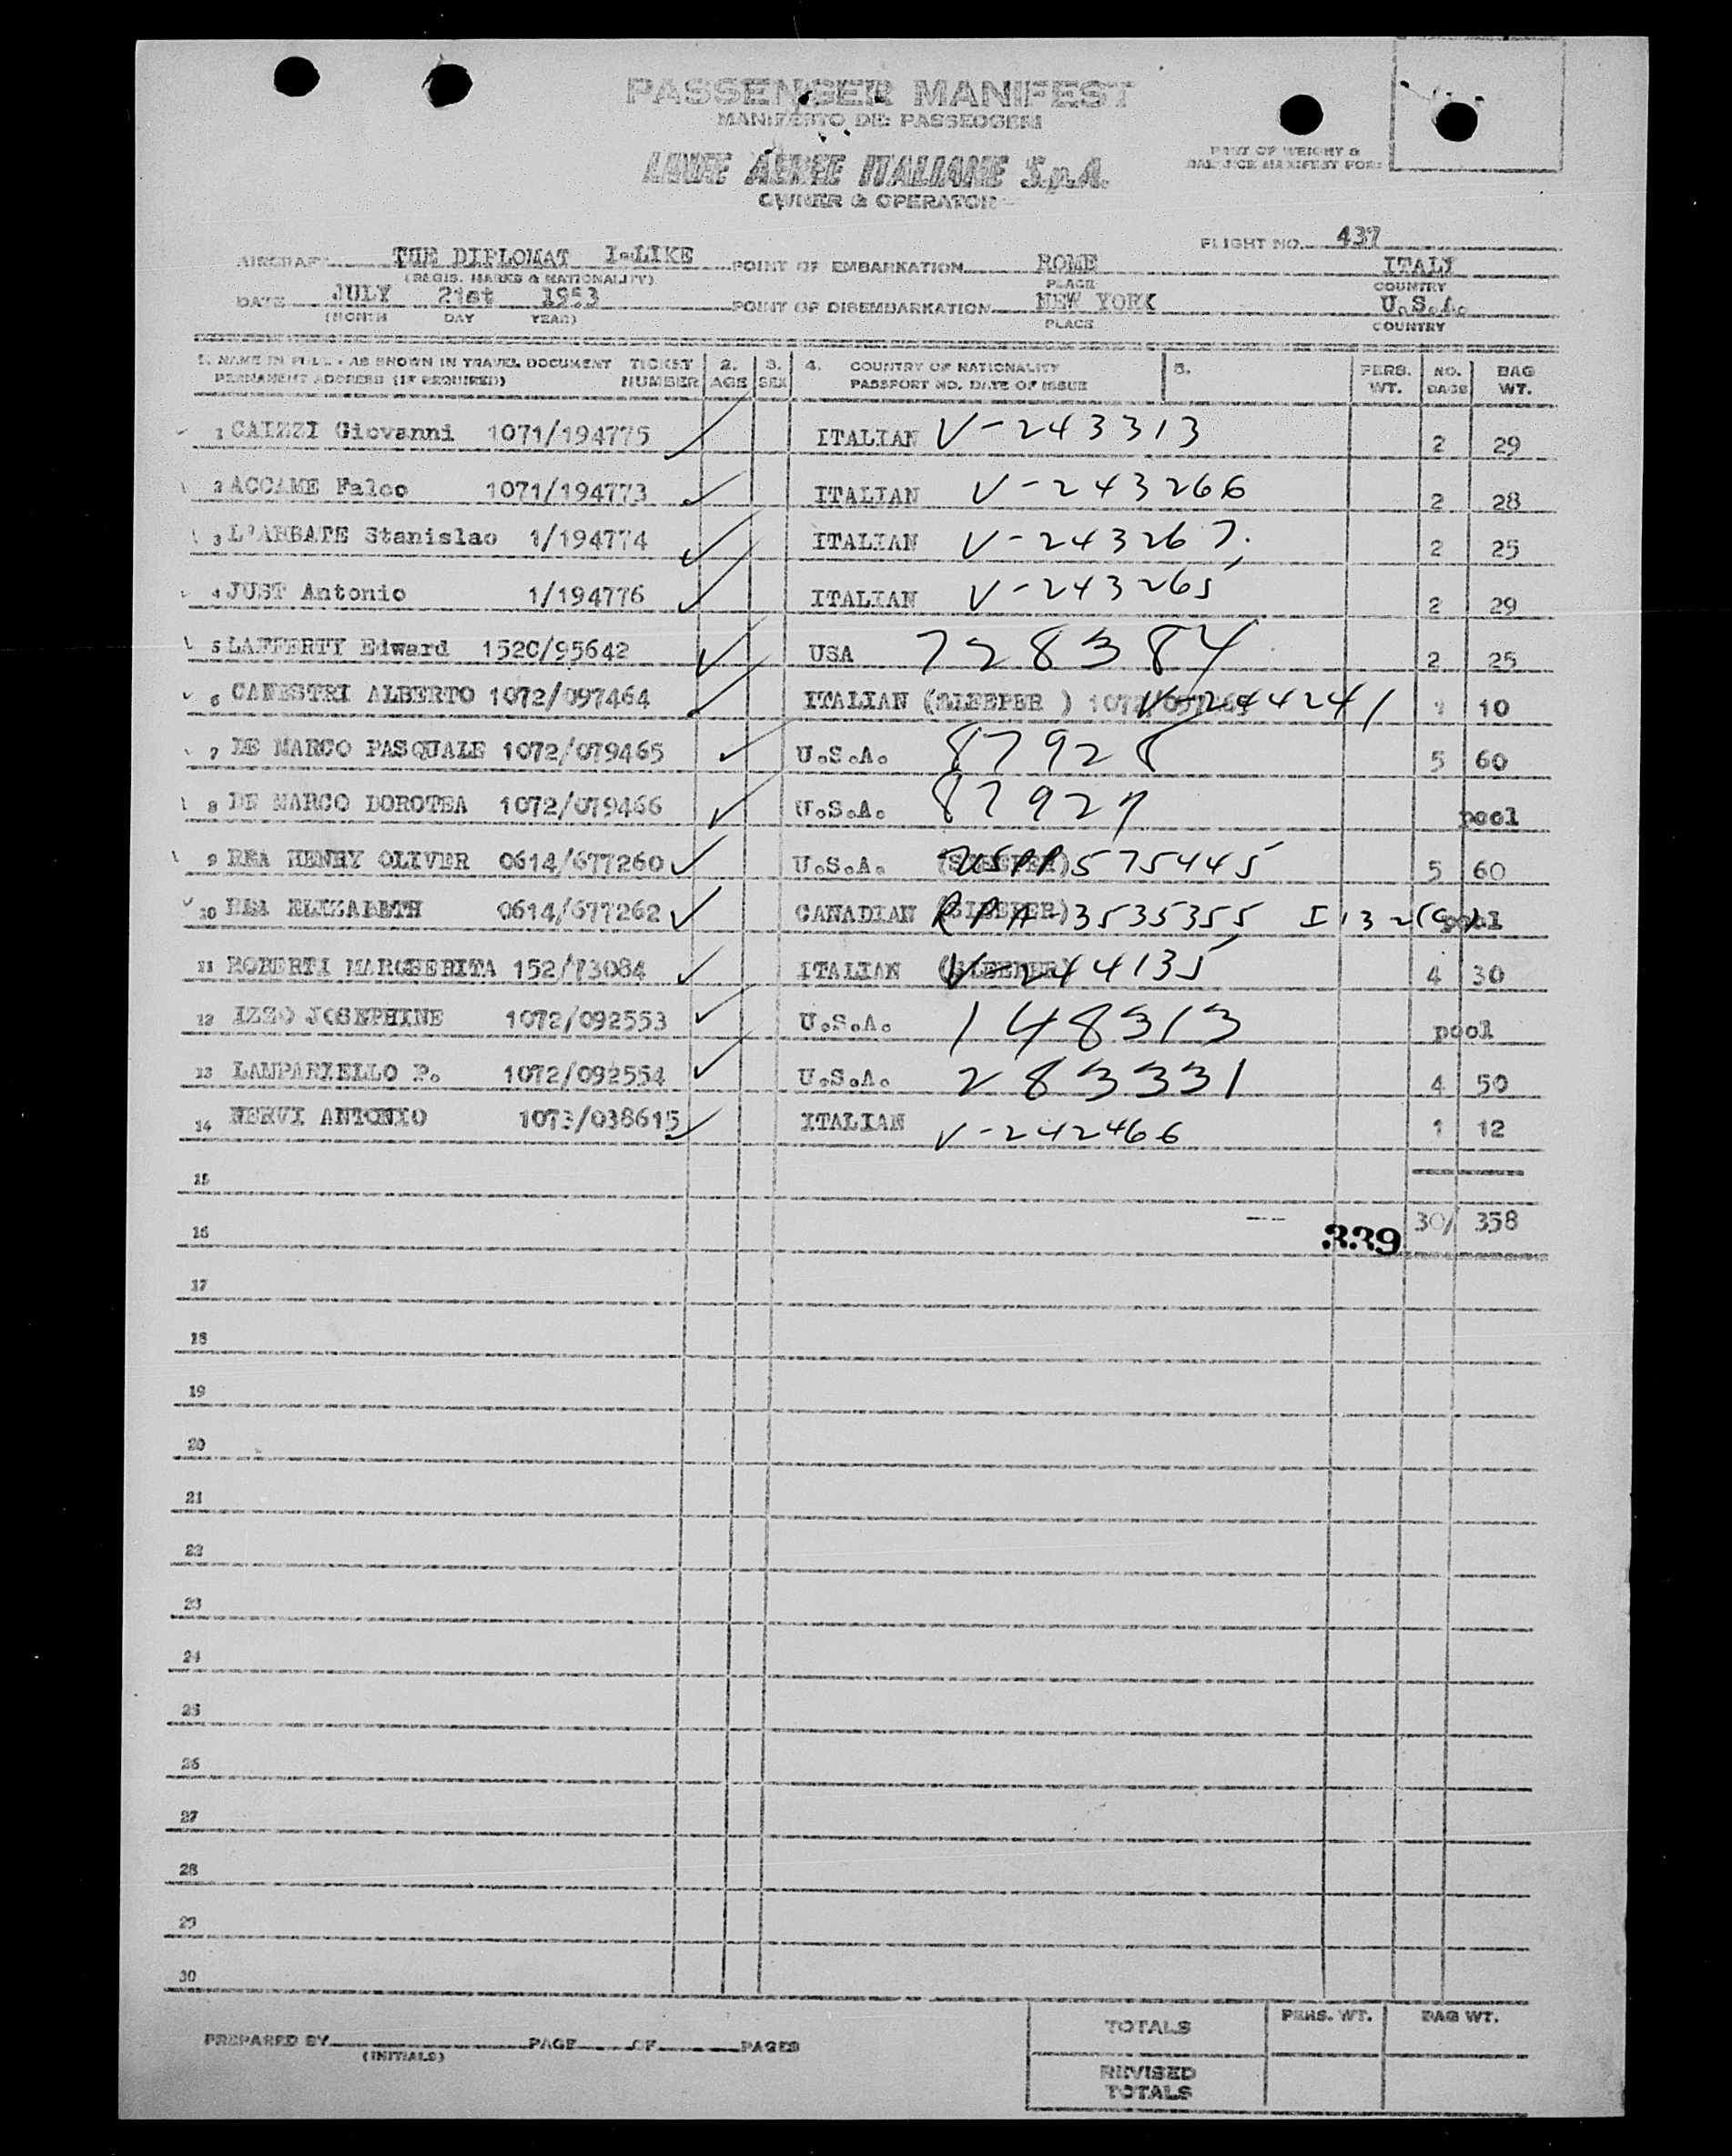 PASSENGER MANIFEST
MANIFESTO DEI PASSEGGERI
LINEE AEREE ITALIANE S.p.A.
OWNER & OPERATOR
PART OF WEIGHT &
BALANCE MANIFEST FOR:
FLIGHT NO. 437
AIRCRAFT THE DIPLOMAT I-LIKE POINT OF EMBARKATION ROME ITALY
(REGIS. MARKS & NATIONALITY) PLACE COUNTRY
DATE JULY 21st 1953 POINT OF DISEMBARKATION NEW YORK U.S.A.
(MONTH DAY YEAR) PLACE COUNTRY
1. NAME IN FULL - AS SHOWN IN TRAVEL DOCUMENT TICKET 2. 3. 4. COUNTRY OF NATIONALITY 5. PERS. NO. BAG
PERMANENT ADDRESS (IF REQUIRED) NUMBER AGE SEX PASSPORT NO. DATE OF ISSUE WT. BAGS WT.
1 CAIZZI Giovanni 1071/194775 ITALIAN V-243313 2 29
2 ACCAME Falco 1071/194773 ITALIAN V-243266 2 28
3 L'ABBATE Stanislao 1/194774 ITALIAN V-243267 2 25
4 JUST Antonio 1/194776 ITALIAN V-243265 2 29
5 LAFFERTY Edward 152C/95642 USA 728384 2 25
6 CANESTRI ALBERTO 1072/097464 ITALIAN (SLEEPER ) V-244241 1 10
7 DE MARCO PASQUALE 1072/079465 U.S.A. 87928 5 60
8 DE MARCO DOROTEA 1072/079466 U.S.A. 87927 pool
9 REA HENRY OLIVER 0614/677260 U.S.A. (SLEEPER) USPP 575445 5 60
10 REA ELIZABETH 0614/677262 CANADIAN (SLEEPER) RPA-3535355 I 132(c) pool
11 ROBERTI MARGHERITA 152/73084 ITALIAN (SLEEPER) V-244135 4 30
12 IZZO JOSEPHINE 1072/092553 U.S.A. 148313 pool
13 LAMPARIELLO P. 1072/092554 U.S.A. 283331 4 50
14 NERVI ANTONIO 1073/038615 ITALIAN V-242466 1 12
15
16 339 30/ 358
17
18
19
20
21
22
23
24
25
26
27
28
29
30
PREPARED BY PAGE OF PAGES
(INITIALS)
TOTALS PERS. WT. BAG WT.
REVISED
TOTALS